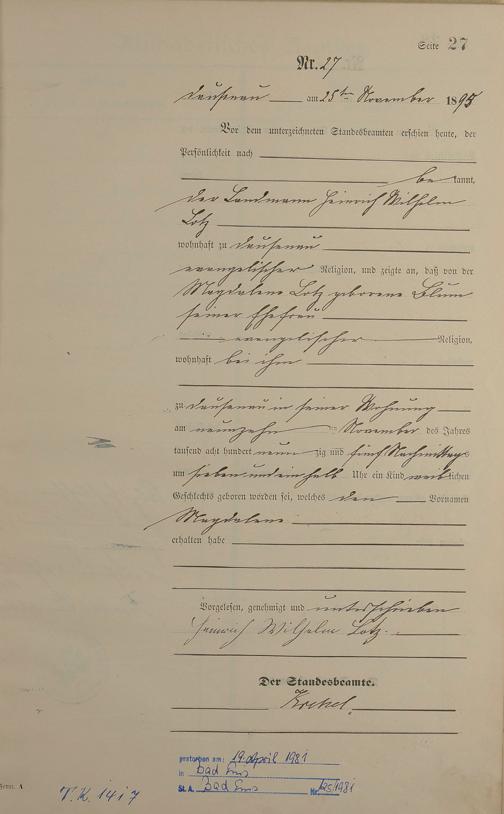 Seite 27
Nr. 27
Dausenau am 25ten November 1895
Vor dem unterzeichneten Standesbeamten erschien heute, der
Persönlichkeit nach
be kannt,
der Landmann Heinrich Wilhelm
Lotz
wohnhaft zu Dausenau
evangelischer Religion, und zeigte an, daß von der
Magdalene Lotz geborene Blum
seiner Ehefrau
evangelischer Religion,
wohnhaft bei ihm
zu Dausenau in seiner Wohnung
am neunzehn ten November des Jahres
tausend acht hundert neun zig und fünf Nachmittags
um sieben und ein halb Uhr ein Kind weiblichen
Geschlechts geboren worden sei, welches den Vornamen
Magdalene
erhalten habe
Vorgelesen, genehmigt und unterschrieben
Heinrich Wilhelm Lotz.
Der Standesbeamte.
gestorben am: 19. April 1981
in Bad Ems
St. A. Bad Ems Nr. 125/1981
Form. A
V.K. 1417